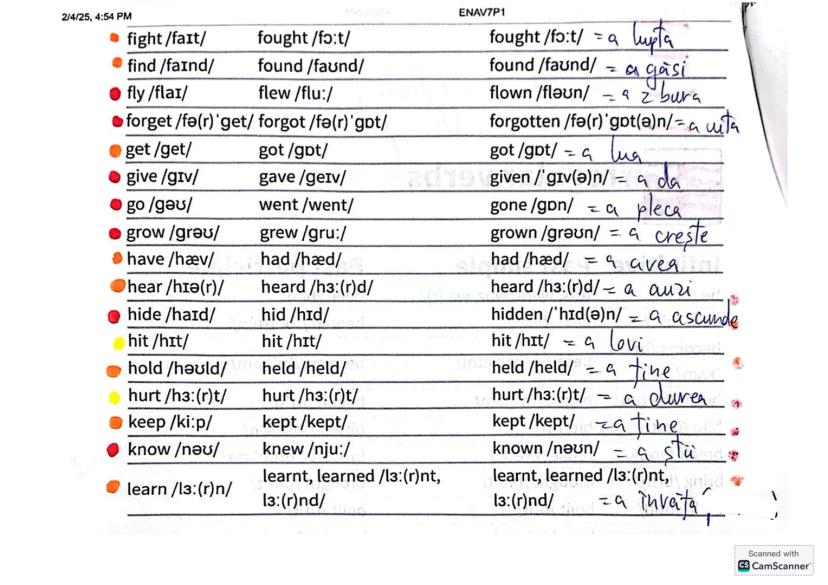 2/4/25, 4:54 PM
ENAV7P1
fight /faɪt/ fought /fɔːt/ fought /fɔːt/ = a lupta
find /faɪnd/ found /faʊnd/ found /faʊnd/ = a găsi
fly /flaɪ/ flew /fluː/ flown /fləʊn/ = a zbura
forget /fə(r)ˈget/ forgot /fə(r)ˈgɒt/ forgotten /fə(r)ˈgɒt(ə)n/ = a uita
get /get/ got /gɒt/ got /gɒt/ = a lua
give /gɪv/ gave /geɪv/ given /ˈgɪv(ə)n/ = a da
go /gəʊ/ went /went/ gone /gɒn/ = a pleca
grow /grəʊ/ grew /gruː/ grown /grəʊn/ = a crește
have /hæv/ had /hæd/ had /hæd/ = a avea
hear /hɪə(r)/ heard /hɜː(r)d/ heard /hɜː(r)d/ = a auzi
hide /haɪd/ hid /hɪd/ hidden /ˈhɪd(ə)n/ = a ascunde
hit /hɪt/ hit /hɪt/ hit /hɪt/ = a lovi
hold /həʊld/ held /held/ held /held/ = a ține
hurt /hɜː(r)t/ hurt /hɜː(r)t/ hurt /hɜː(r)t/ = a durea
keep /kiːp/ kept /kept/ kept /kept/ = a ține
know /nəʊ/ knew /njuː/ known /nəʊn/ = a știi
learn /lɜː(r)n/ learnt, learned /lɜː(r)nt, learnt, learned /lɜː(r)nt,
lɜː(r)nd/ lɜː(r)nd/ = a învăța
Scanned with
CS CamScanner